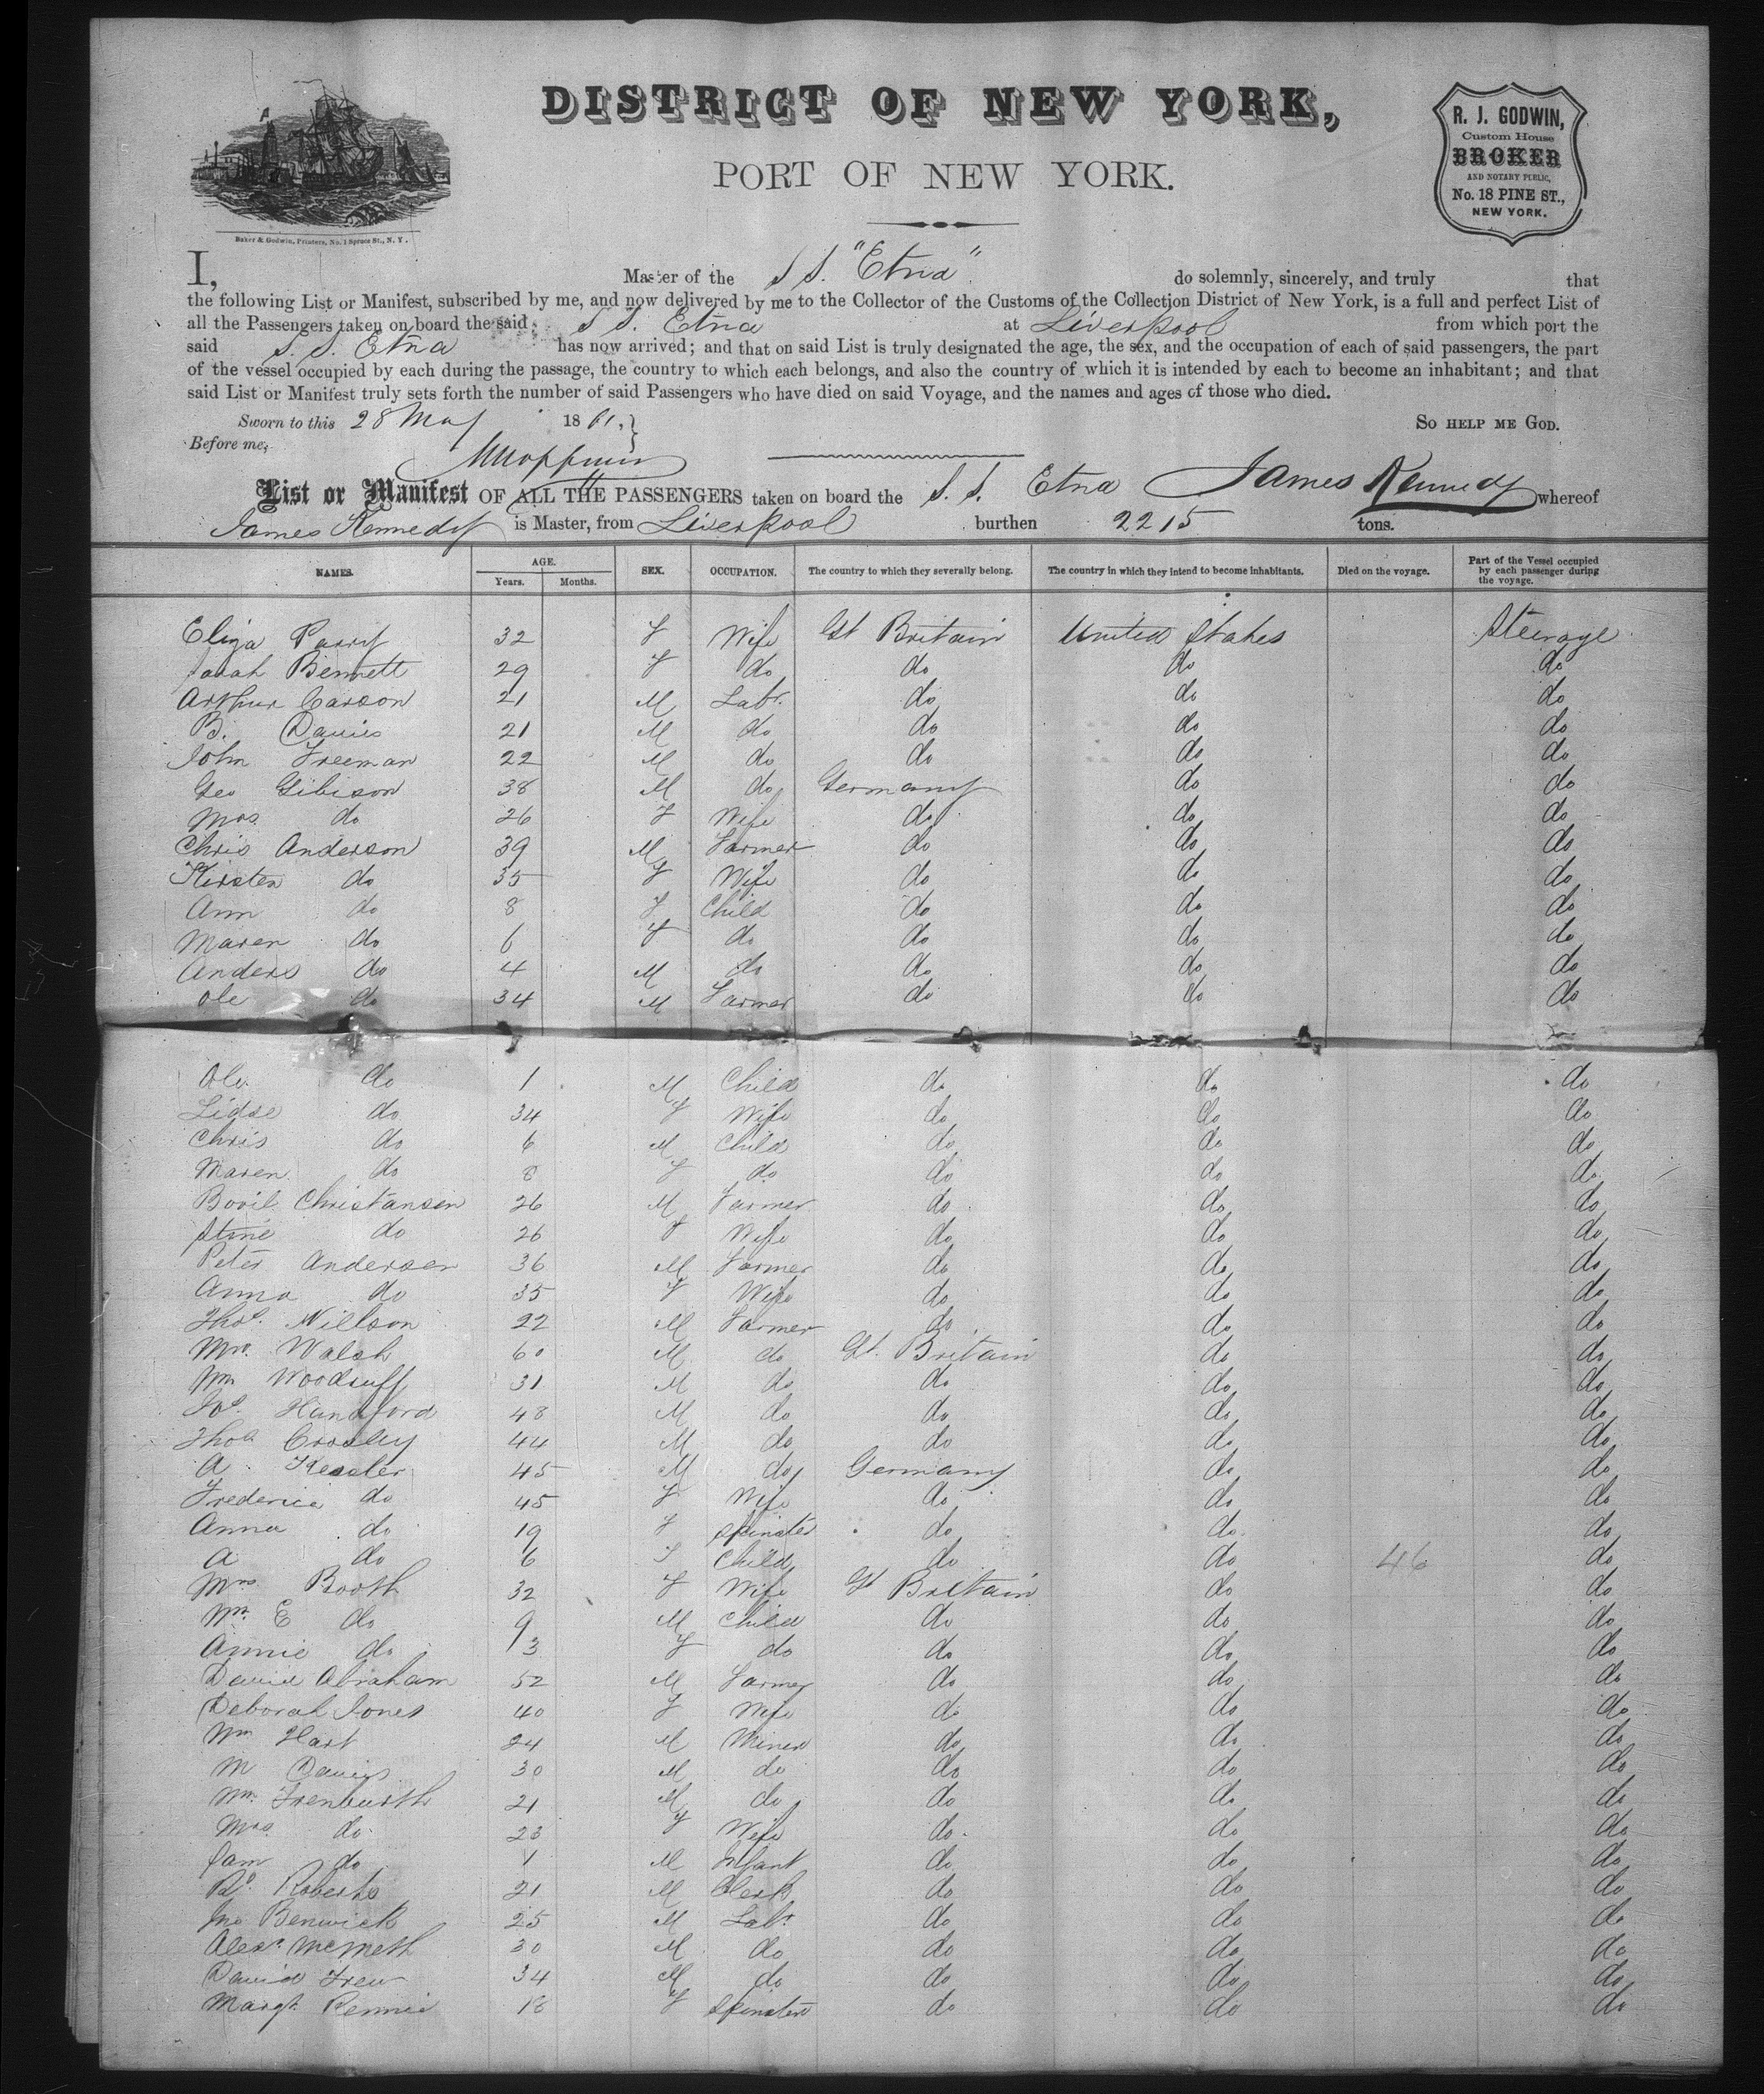 DISTRICT OF NEW YORK,
PORT OF NEW YORK.
Baker & Godwin, Printers, No. 1 Spruce St., N. Y.
R. J. GODWIN,
Custom House
BROKER
AND NOTARY PUBLIC,
No. 18 PINE ST.,
NEW YORK.
I, Master of the S S. "Etna" do solemnly, sincerely, and truly that
the following List or Manifest, subscribed by me, and now delivered by me to the Collector of the Customs of the Collection District of New York, is a full and perfect List of
all the Passengers taken on board the said S S. Etna at Liverpool from which port the
said S. S. Etna has now arrived; and that on said List is truly designated the age, the sex, and the occupation of each of said passengers, the part
of the vessel occupied by each during the passage, the country to which each belongs, and also the country of which it is intended by each to become an inhabitant; and that
said List or Manifest truly sets forth the number of said Passengers who have died on said Voyage, and the names and ages of those who died.
Sworn to this 28 May 1861, So HELP ME GOD.
Before me,
James Kennedy
List or Manifest OF ALL THE PASSENGERS taken on board the S. S. Etna whereof
James Kennedy is Master, from Liverpool burthen 2215 tons.
NAMES. AGE. Years. Months. SEX. OCCUPATION. The country to which they severally belong. The country in which they intend to become inhabitants. Died on the voyage. Part of the Vessel occupied by each passenger during the voyage.
Eliza Parry 32 F Wife Gt Britain United States Steerage
Sarah Bennett 29 F do do do do
Arthur Carson 21 M Labr. do do do
B. Davies 21 M do do do do
John Freeman 22 M do do do do
Geo Gibison 38 M do Germany do do
Mrs. do 26 F Wife do do do
Chris Anderson 39 M Farmer do do do
Kirsten do 35 F Wife do do do
Ann do 8 F Child do do do
Maren do 6 F do do do do
Anders do 4 M do do do do
Ole do 34 M Farmer do do do
Ole do 1 M Child do do do
Lidse do 34 F Wife do do do
Chris do 6 M Child do do do
Maren do 8 F do do do do
Bovil Christansen 26 M Farmer do do do
Stine do 26 F Wife do do do
Peter Andersen 36 M Farmer do do do
Anna do 35 F Wife do do do
Thos. Nillson 22 M Farmer do do do
Walsh 60 M do Gt. Britain do do
Wm Woodruff 31 M do do do do
Handford 48 M do do do do
Thos Crosley 44 M do do do do
A. Kessler 45 M do Germany do do
Frederica do 45 F Wife do do do
Anna do 19 F Spinster do do do
A do 6 F Child do do 46 do
Mrs Booth 32 F Wife Gt Britain do do
Wm. E do 9 M Child do do do
Annie do 3 F do do do do
David Abraham 52 M Farmer do do do
Deborah Jones 40 F Wife do do do
Wm Hart 24 M Miner do do do
M Davies 30 M do do do do
Wm. Trenbarth 21 M do do do do
Mrs. do 23 F Wife do do do
Sam do 1 M Infant do do do
Rd. Roberts 21 M Clerk do do do
Jno Benwick 25 M Labr. do do do
Alexr. McMeth 30 M do do do do
David Frew 34 M do do do do
Margt. Rennie 18 F Spinster do do do